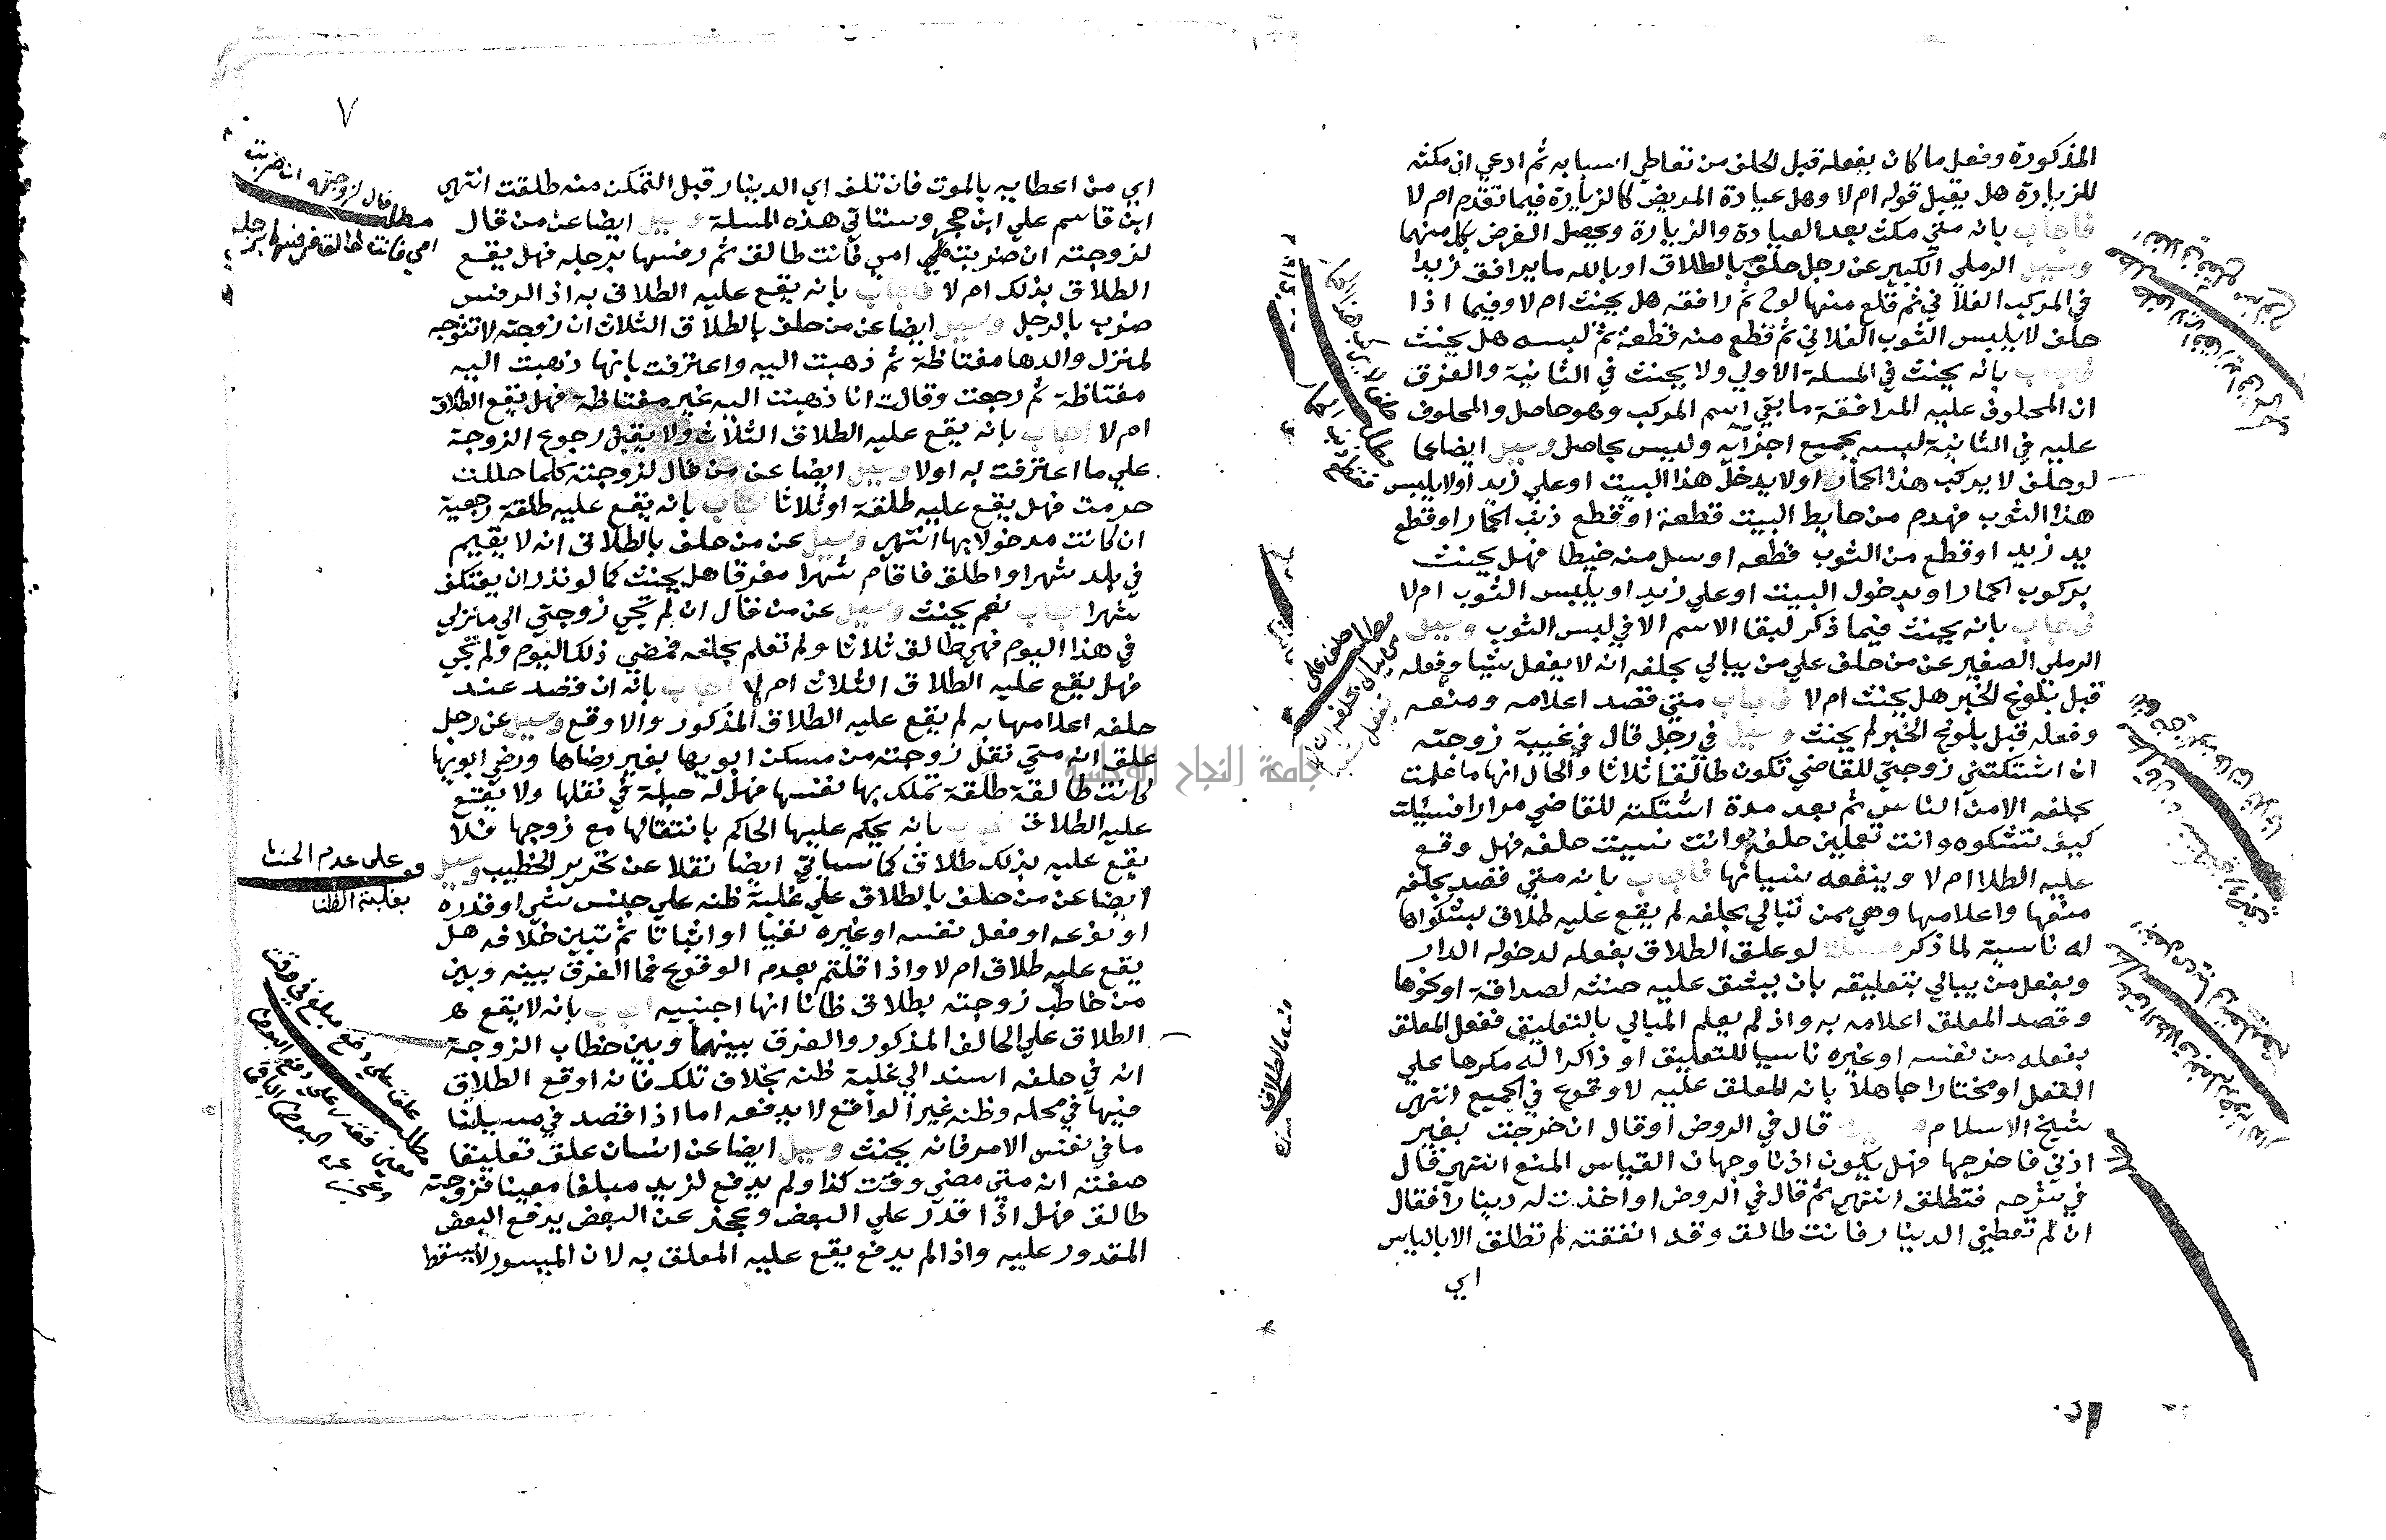 المذكورة وفعل ما كان يفعله قبل الحلف من تعاطي اسبابه ثم ادعي ان مكثه
للزيارة هل يقبل قوله ام لا وهل عيادة المريض كالزيارة فيما تقدم ام لا
فاجاب بانه متي مكث بعد العيادة والزيارة ويحصل الغرض بكل منهما
وسيل الرملي الكبير عن رجل حلف بالطلاق او بالله ما يرافق زيدا
في المركب الفلاني ثم قلع منها لوح ثم رافقه هل يحنث ام لا وفيما اذا
حلف لا يلبس الثوب الفلاني ثم قطع منه قطعة ثم لبسه هل يحنث
فاجاب بانه يحنث في المسلة الاولي ولا يحنث في الثانية والفرق
ان المحلوف عليه المرافقة ما بقي اسم المركب وهو حاصل والمحلوف
عليه في الثانية لبسه بجميع اجزآيه وليس بحاصل وسيل ايضا عما
لو حلف لا يركب هذا الحمار او لا يدخل هذا البيت او علي زيد او لا يلبس
هذا الثوب فهدم من حايط البيت قطعة او قطع ذنب الحمار او قطع
يد زيد او قطع من الثوب قطعه او سل منه خيطا فهل يحنث
بركوب الحمار او بدخول البيت او علي زيد او بلبس الثوب ام لا
فاجاب بانه يحنث فيما ذكر لبقا الاسم الا في لبس الثوب وسيل
الرملي الصغير عن من حلف علي من يبالي بحلفه انه لا يفعل شيا وفعله
قبل بلوغ الخبر هل يحنث ام لا فاجاب متي قصد اعلامه ومنعه
وفعله قبل بلوغ الخبر لم يحنث وسيل في رجل قال في غيبة زوجته
ان اشتكتني زوجتي للقاضي تكون طالقا ثلاثا والحال انها ما علمت
بحلفه الا من الناس ثم بعد مدة اشتكته للقاضي مرارا فسيلت
كيف تشكوه وانت تعلمين حلفه وانت نسيت حلفه فهل وقع
عليه الطلاا ام لا وينفعه نسيانها فاجاب بانه متي قصد بحلفه
منعها واعلامها وهي ممن تبالي بحلفه لم يقع عليه طلاق بشكواها
له ناسية لما ذكر لو علق الطلاق بفعله لدخوله الدار
وبفعل من يبالي بتعليقه بان يشق عليه حنثه لصداقة او نحوها
وقصد المعلق اعلامه به واذ لم يعلم المبالي بالتعليق ففعل المعلق
بفعله من نفسه او غيره ناسيا للتعليق او ذاكرا له مكرها علي
الفعل او مختارا جاهلا بانه المعلق عليه لا وقوع في الجميع انتهي
شيخ الاسلام قال في الروض او قال ان خرجت بغير
اذني فاخرجها فهل يكون اذنا وجهان القياس المنع انتهي قال
في شرحه فتطلق انتهي ثم قال في الروض او اخذت له دينارا فقال
ان لم تعطيني الدينار فانت طالق وقد انفقته لم تطلق الا بالياس
اي
٧
اي من اعطايه بالموت فان تلف اي الدينار قبل التمكن منه طلقت انتهي
ابن قاسم علي ابن حجر وستاتي هذه المسلة وسيل ايضا عن من قال
لزوجته ان ضربت امي فانت طالق ثم رفستها برجله فهل يقع
الطلاق بذلك ام لا فاجاب بانه يقع عليه الطلاق به اذ الرفس
ضرب بالرجل وسيل ايضا عن من حلف بالطلاق الثلاث ان زوجته لا تتوجه
لمنزل والدها مغتاظة ثم ذهبت اليه واعترفت بانها ذهبت اليه
مغتاظة ثم رجعت وقالت انا ذهبت اليه غير مغتاظة فهل يقع الطلاق
ام لا اجاب بانه يقع عليه الطلاق الثلاث ولا يقبل رجوع الزوجة
علي ما اعترفت به اولا وسيل ايضا عن من قال لزوجته كلما حللت
حرمت فهل يقع عليه طلقة او ثلاثا اجاب بانه يقع عليه طلقة رجعية
ان كانت مدخولا بها انتهي وسيل عن من حلف بالطلاق انه لا يقيم
في بلد شهرا واطلق فاقام شهرا مفرقا هل يحنث كما لو نذر ان يعتكف
شهرا اجاب نعم يحنث وسيل عن من قال ان لم تجي زوجتي الي منزلي
في هذا اليوم فهي طالق ثلاثا ولم تعلم بحلفه فمضي ذلك اليوم ولم تجي
فهل يقع عليه الطلاق الثلاث ام لا اجاب بانه ان قصد عند
حلفه اعلامها به لم يقع عليه الطلاق المذكور والا وقع وسيل عن رجل
علق انه متي نقل زوجته من مسكن ابويها بغير رضاها ورضي ابويها
كانت طالقة طلقة تملك بها نفسها فهل له حيلة في نقلها ولا يقع
عليه الطلاق اجاب بانه يحكم عليها الحاكم بانتقالها مع زوجها فلا
يقع عليه بذلك طلاق كما سياتي ايضا نقلا عن تحرير الخطيب وسيل
ايضا عن من حلف بالطلاق علي غلبة ظنه علي جنس شي او قدره
او نوعه او فعل نفسه او غيره نفيا او اثباتا ثم تبين خلافه هل
يقع عليه طلاق ام لا واذا قلتم بعدم الوقوع فما الفرق بينه وبين
من خاطب زوجته بطلاق ظانا انها اجنبيه اجاب بانه لا يقع
الطلاق علي الحالف المذكور والفرق بينهما وبين خطاب الزوجة
انه في حلفه اسند الي غلبة ظنه بخلاف تلك فانه اوقع الطلاق
فيها في محله وظنه غير الواقع لا يدفعه اما اذا قصد في مسيلتنا
ما في نفس الامر فانه يحنث وسيل ايضا عن انسان علق تعليقا
صفته انه متي مضي وقت كذا ولم يدفع لزيد مبلغا معينا فزوجته
طالق فهل اذا قدر علي البعض وعجز عن البعض يدفع البعض
المقدور عليه واذا لم يدفع يقع عليه المعلق به لان الميسور لا يسقط
مطلب قال لزوجته ان ضربت
امي فانت طالق فرفستها برجله
على عدم الحنث
بغلبة الظن
مطلب علق علي دفع مبلغ في وقت
معين فقدر علي دفع البعض
وعجز عن البعض الباقي
مطلب حلف على
جامعة النجاح الوطنية